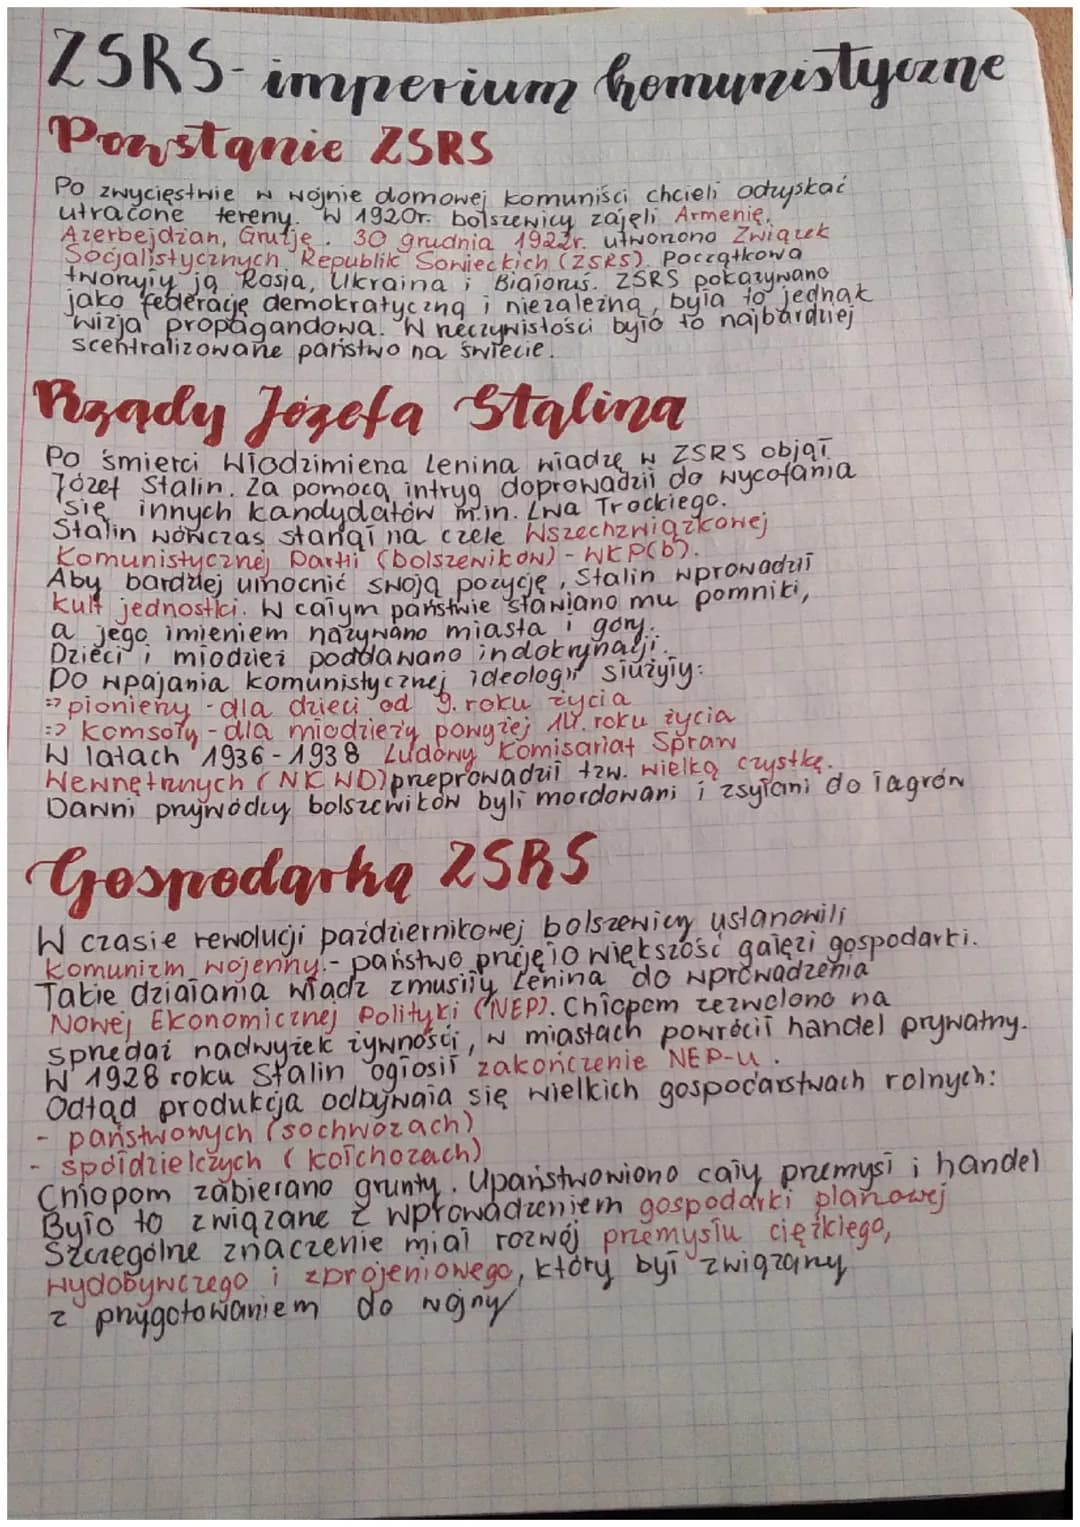 ZSRS - imperium komunistyczne
Powstanie ZSRS
Po zwycięstwie w wojnie domowej komuniści chcieli odzyskać
utracone tereny. W 1920r. bolszewicy zajęli Armenię,
Azerbejdżan, Gruzję. 30 grudnia 1922r. utworzono Związek
Socjalistycznych Republik Sowieckich (ZSRS). Początkowa
tworzyły ją Rosja, Ukraina i Białoruś. ZSRS pokazywano
jako federację demokratyczną i niezależną, była to jednak
wizja propagandowa. W rzeczywistości było to najbardziej
scentralizowane państwo na świecie.
Rządy Józefa Stalina
Po śmierci Włodzimierza Lenina władzę w ZSRS objął
Józef Stalin. Za pomocą intryg doprowadził do wycofania
się innych kandydatów m.in. Lwa Trockiego.
Stalin wówczas stanął na czele Wszechzwiązkowej
Komunistycznej Partii (bolszewików) - WKP(b).
Aby bardziej umocnić swoją pozycję, Stalin wprowadził
kult jednostki. W całym państwie stawiano mu pomniki,
a jego imieniem nazywano miasta i góry.
Dzieci i młodzież poddawano indokrynacji.
Do wpajania komunistycznej ideologii służyły:
=> pionierzy - dla dzieci od 9. roku życia
=> komsoły - dla młodzieży powyżej 14. roku życia
W latach 1936-1938 Ludowy Komisariat Spraw
Wewnętrznych (NKWD) przeprowadził tzw. wielką czystkę.
Dawni przywódcy bolszewików byli mordowani i zsyłani do łagrów
Gospodarka ZSRS
W czasie rewolucji październikowej bolszewicy ustanowili
komunizm wojenny. - państwo przejęło większość gałęzi gospodarki.
Takie działania władz zmusiły Lenina do wprowadzenia
Nowej Ekonomicznej Polityki (NEP). Chłopom zezwolono na
sprzedaż nadwyżek żywności, w miastach powrócił handel prywatny.
W 1928 roku Stalin ogłosił zakończenie NEP-u.
Odtąd produkcja odbywała się wielkich gospodarstwach rolnych:
- państwowych (sochwozach)
- spółdzielczych (kołchozach)
Chłopom zabierano grunty. Upaństwowiono cały przemysł i handel
Było to związane z wprowadzeniem gospodarki planowej
Szczególne znaczenie miał rozwój przemysłu ciężkiego,
wydobywczego i zbrojeniowego, który był związany
z przygotowaniem do wojny